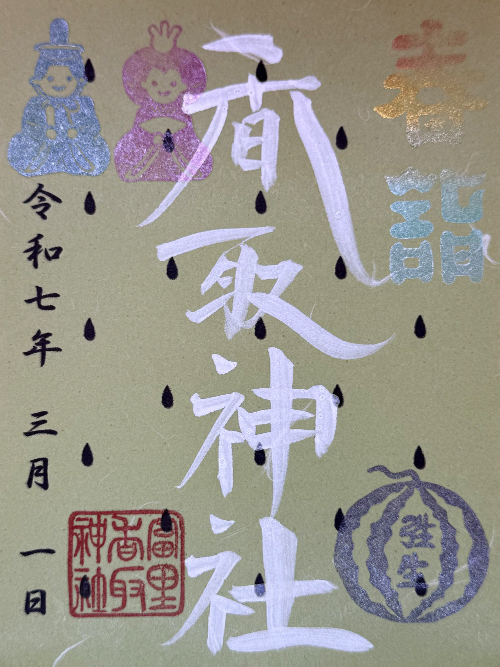 春詣
弥生
香取神社
富里
香取
神社
令和七年 三月 一日